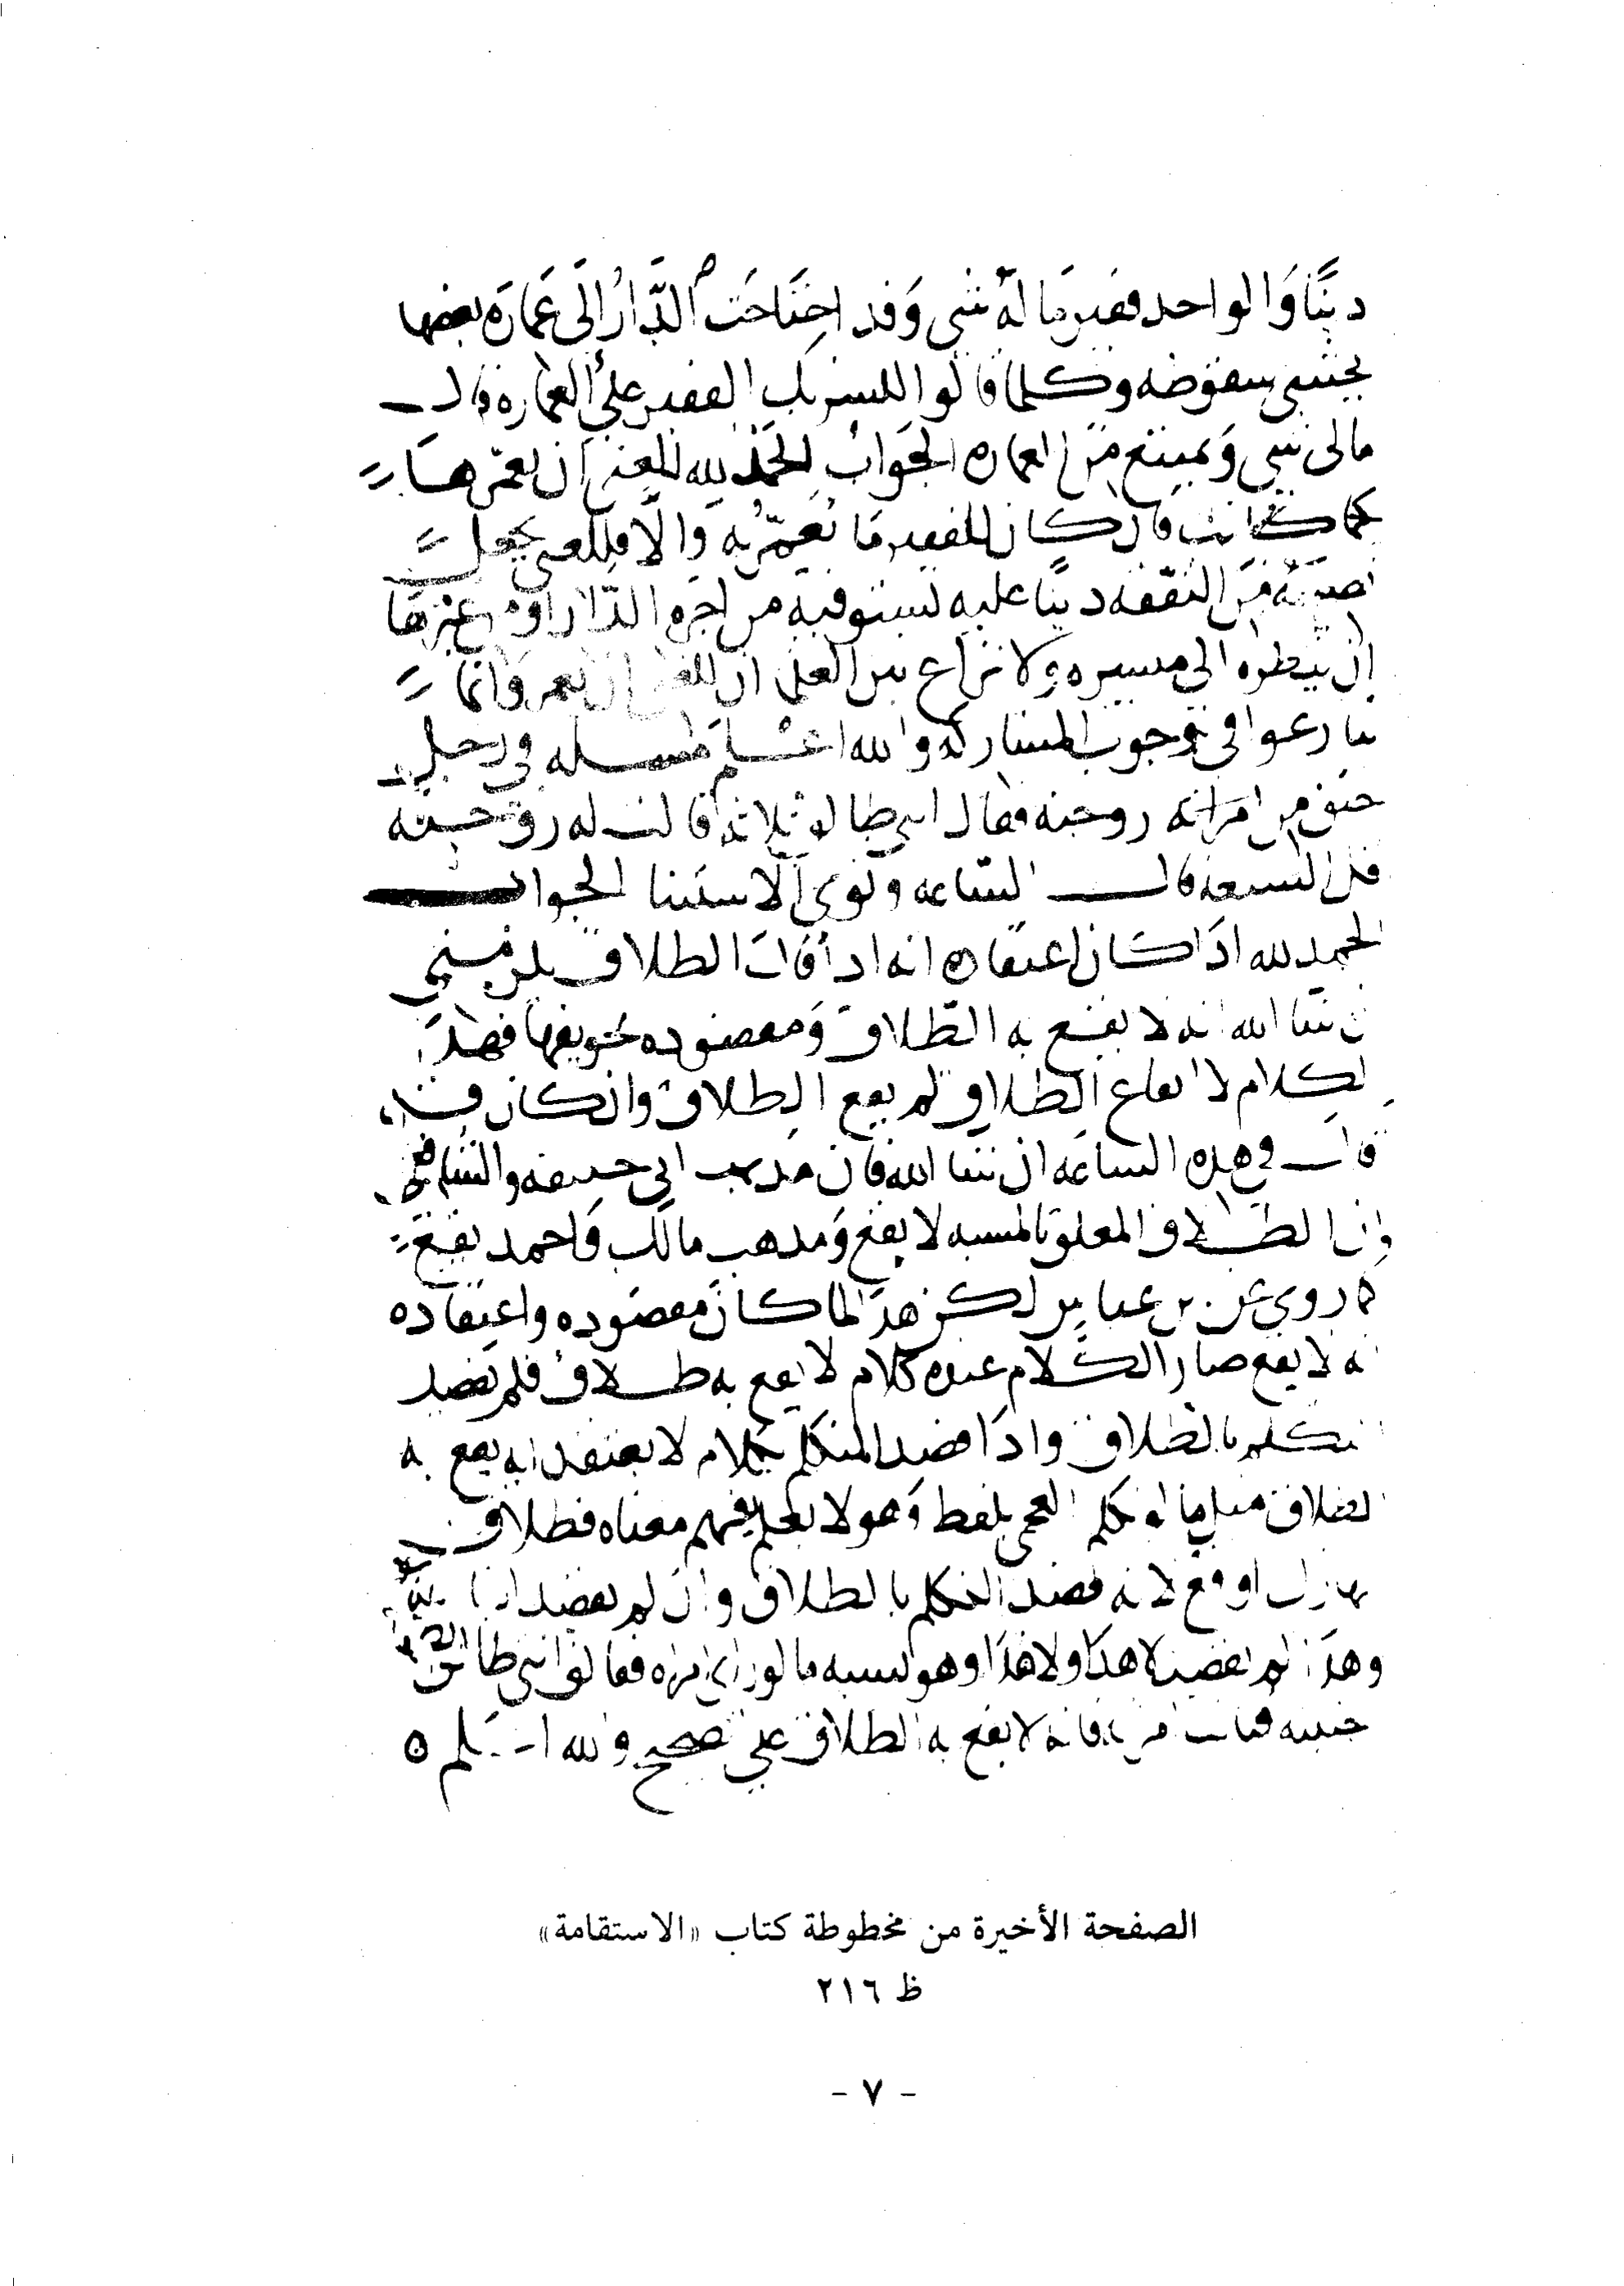 دينا والواحد فقير ما له شي وقد احتاجت الدار الى عمارة بعضها
يخشى سقوطه وكلما قالوا للشريك الفقير على العمارة قال
مالى شي ويمتنع من العماره الجواب الحمد لله للغني ان يعمرها
كما كانت فان كان للفقير ما يعمر به والا فللغني يجعل
نصيبه من النفقه دينا عليه يستوفيه من اجره الدار او من غيرها
ان ينظره الى ميسره ولا نزاع بين العلما ان للغني ان يعمر وانما
تنازعوا في وجوب المشاركه والله اعلم مسله في رجل
حنق من امراته زوجته فقال انتي طالق ثلاثه قالت له زوجته
قل الساعه قال الساعه ونوى الاستثنا الجواب
الحمد لله اذا كان اعتقاده انه اذا قال الطلاق يلزمني
ان شا الله انه لا يقع به الطلاق ومقصوده تخويفها فهذا
الكلام لا ايقاع الطلاق لم يقع الطلاق وان كان
قال في هذه الساعه ان شا الله فان مذهب ابي حنيفه والشافعي
ان الطلاق المعلق بالمشيه لا يقع ومذهب مالك واحمد يقع
كما روي عن بن عباس لكن هذا لما كان مقصوده واعتقاده
انه لا يقع صار الكلام عنده كلام لا يقع به طلاق فلم يقصد
التكلم بالطلاق واذا قصد المتكلم بكلام لا يعتقد انه يقع به
الطلاق مثل ما لو تكلم العجمي بلفظ وهو لا يفهم معناه وطلاق
الهازل وقع لانه قصد التكلم بالطلاق وان لم يقصد ايقاعه
وهذا لم يقصد لا هذا ولا هذا وهو يشبه ما لو راى امراه فقال انتي طالق
اجنبيه فبانت امراته فانه لا يقع به الطلاق على الصحيح والله اعلم ه
الصفحة الأخيرة من مخطوطة كتاب «الاستقامة»
ظ ٢١٦
- ٧ -